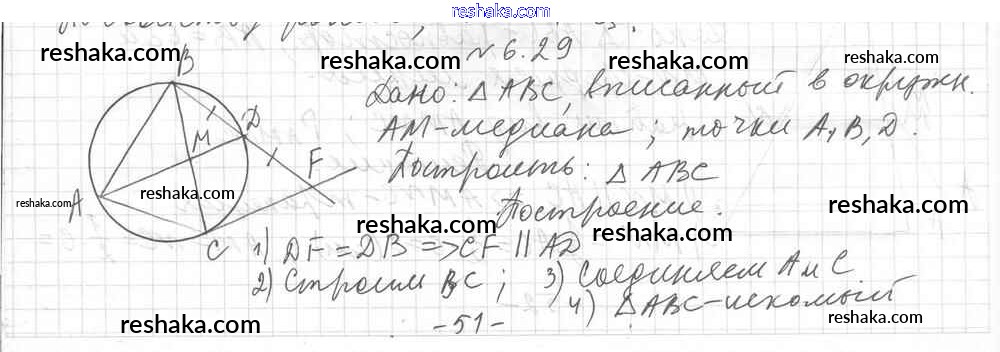 reshaka.com
№ 6.29
Дано: △ABC, вписанный в окружн.
AM-медиана; точки A, B, D.
Построить: △ABC
Построение.
1) DF = DB => CF || AD
2) Строим BC; 3) Соединяем A и C
4) △ABC-искомый
-51-
B
D
M
F
A
C
reshaka.com
reshaka.com
reshaka.com
reshaka.com
reshaka.com
reshaka.com
reshaka.com
reshaka.com
reshaka.com
reshaka.com
reshaka.com
reshaka.com
reshaka.com